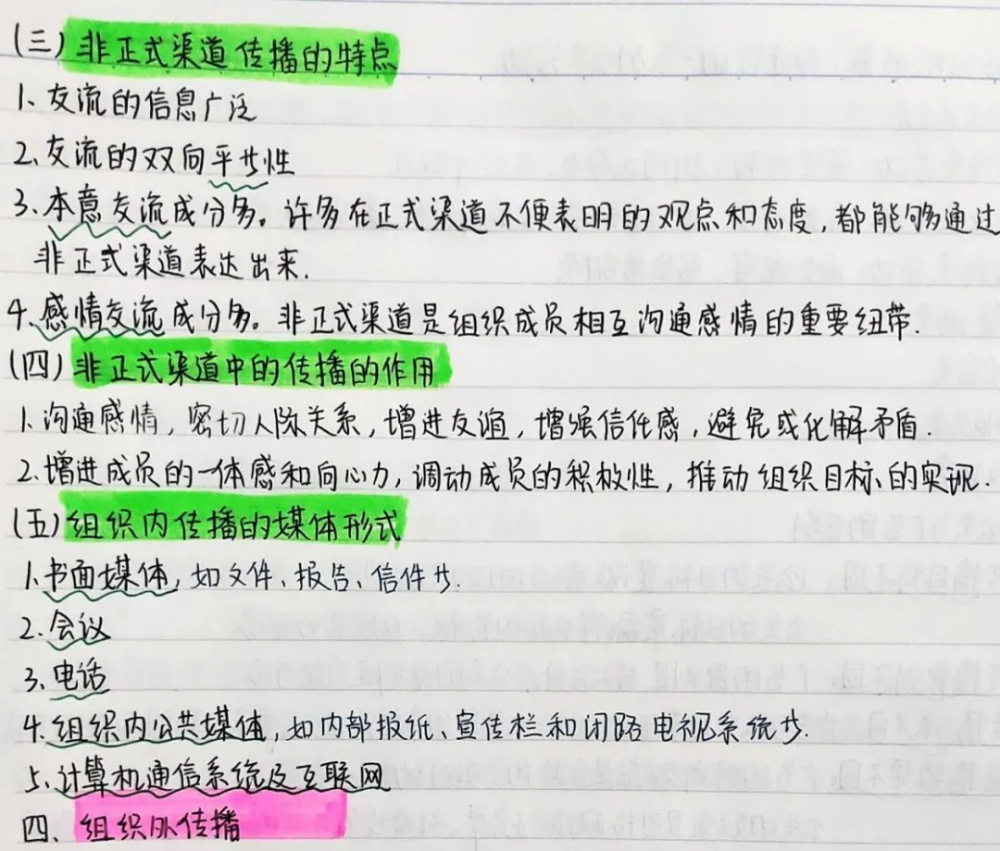 (三)非正式渠道传播的特点
1、交流的信息广泛
2、交流的双向平等性
3、本意交流成分多。许多在正式渠道不便表明的观点和态度,都能够通过
非正式渠道表达出来.
4、感情交流成分多。非正式渠道是组织成员相互沟通感情的重要纽带.
(四)非正式渠道中的传播的作用
1.沟通感情,密切人际关系,增进友谊,增强信任感,避免或化解矛盾.
2.增进成员的一体感和向心力,调动成员的积极性,推动组织目标的实现.
(五)组织内传播的媒体形式
1.书面媒体,如文件、报告、信件等.
2.会议
3、电话
4.组织内公共媒体,如内部报纸、宣传栏和闭路电视系统等.
5、计算机通信系统及互联网
四、组织外传播